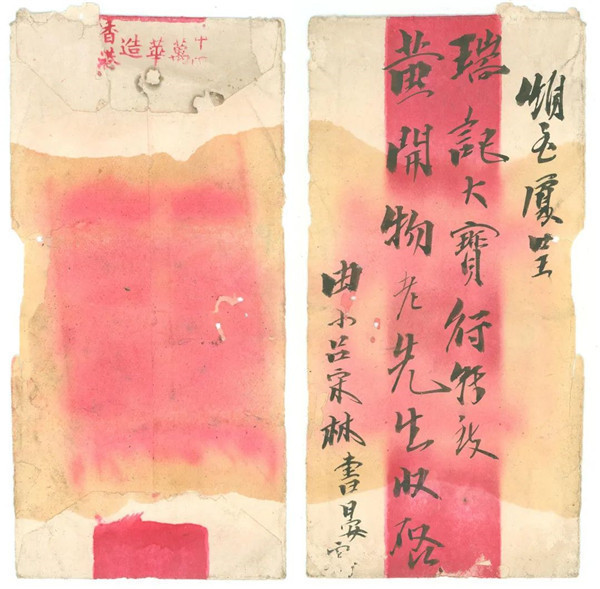 萬華造
香港
煩至廈呈
瑞記大寶行轉致
黃開物老先生收啓
由小呂宋林書晏